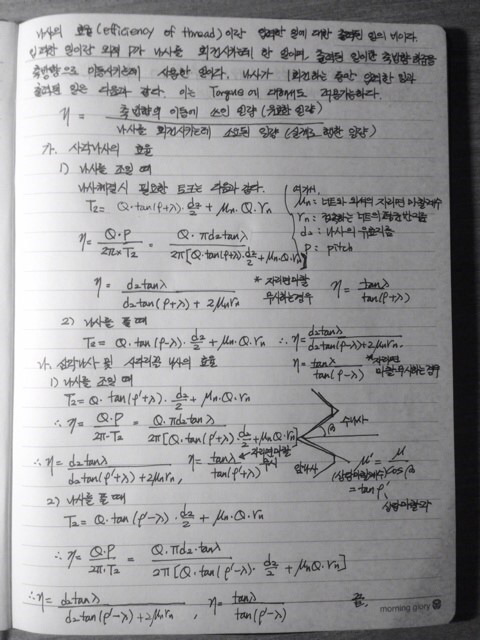 나사의 효율(efficiency of thread)이란 입력한 일에 대한 출력된 일의 비이다.
입력한 일이란 외력 P가 나사를 회전시키는데 한 일이며, 출력된 일이란 축방향 하중을
축방향으로 이동시키는데 사용한 일이다. 나사가 1회전하는 동안 입력한 일과
출력된 일은 다음과 같다. 이는 Torque에 대해서도 적용가능하다.
η = 축방향의 이동에 쓰인 일량 (유효한 일량) / 나사를 회전시키는데 소요된 일량 (실제로 행한 일량)
가. 사각나사의 효율
1) 나사를 조일 때
나사체결시 필요한 토크는 다음과 같다.
T2 = Q·tan(ρ+λ)·d2/2 + μn·Q·rn
여기서,
μn : 너트와 와셔의 자리면 마찰계수
rn : 접촉하는 너트의 평균 반지름
d2 : 나사의 유효지름
P : pitch
η = Q·P / 2π×T2 = Q·πd2tanλ / 2π[Q·tan(ρ+λ)·d2/2 + μn·Q·rn]
η = d2tanλ / d2tan(ρ+λ) + 2μnrn
* 자리면마찰 무시하는경우
η = tanλ / tan(ρ+λ)
2) 나사를 풀 때
T2 = Q·tan(ρ-λ)·d2/2 + μn·Q·rn ∴ η = d2tanλ / d2tan(ρ-λ)+2μnrn.
η = tanλ / tan(ρ-λ) *자리면 마찰무시하는경우
나. 삼각나사 및 사다리꼴 나사의 효율
1) 나사를 조일 때
T2 = Q·tan(ρ'+λ)·d2/2 + μn·Q·rn
∴ η = Q·P / 2π·T2 = Q·πd2tanλ / 2π[Q·tan(ρ'+λ) d2/2 + μn·Q·rn]
수나사
β
암나사
∴ η = d2tanλ / d2tan(ρ'+λ) + 2μnrn, η = tanλ / tan(ρ'+λ) 자리면마찰 무시
μ' = μ / cosβ
(상당마찰계수)
= tanρ'
상당마찰각
2) 나사를 풀 때
T2 = Q·tan(ρ'-λ)·d2/2 + μn·Q·rn
∴ η = Q·P / 2π·T2 = Q·πd2·tanλ / 2π[Q·tan(ρ'-λ)·d2/2 + μnQ·rn]
∴ η = d2tanλ / d2tan(ρ'-λ)+2μnrn , η = tanλ / tan(ρ'-λ) 끝.
morning glory